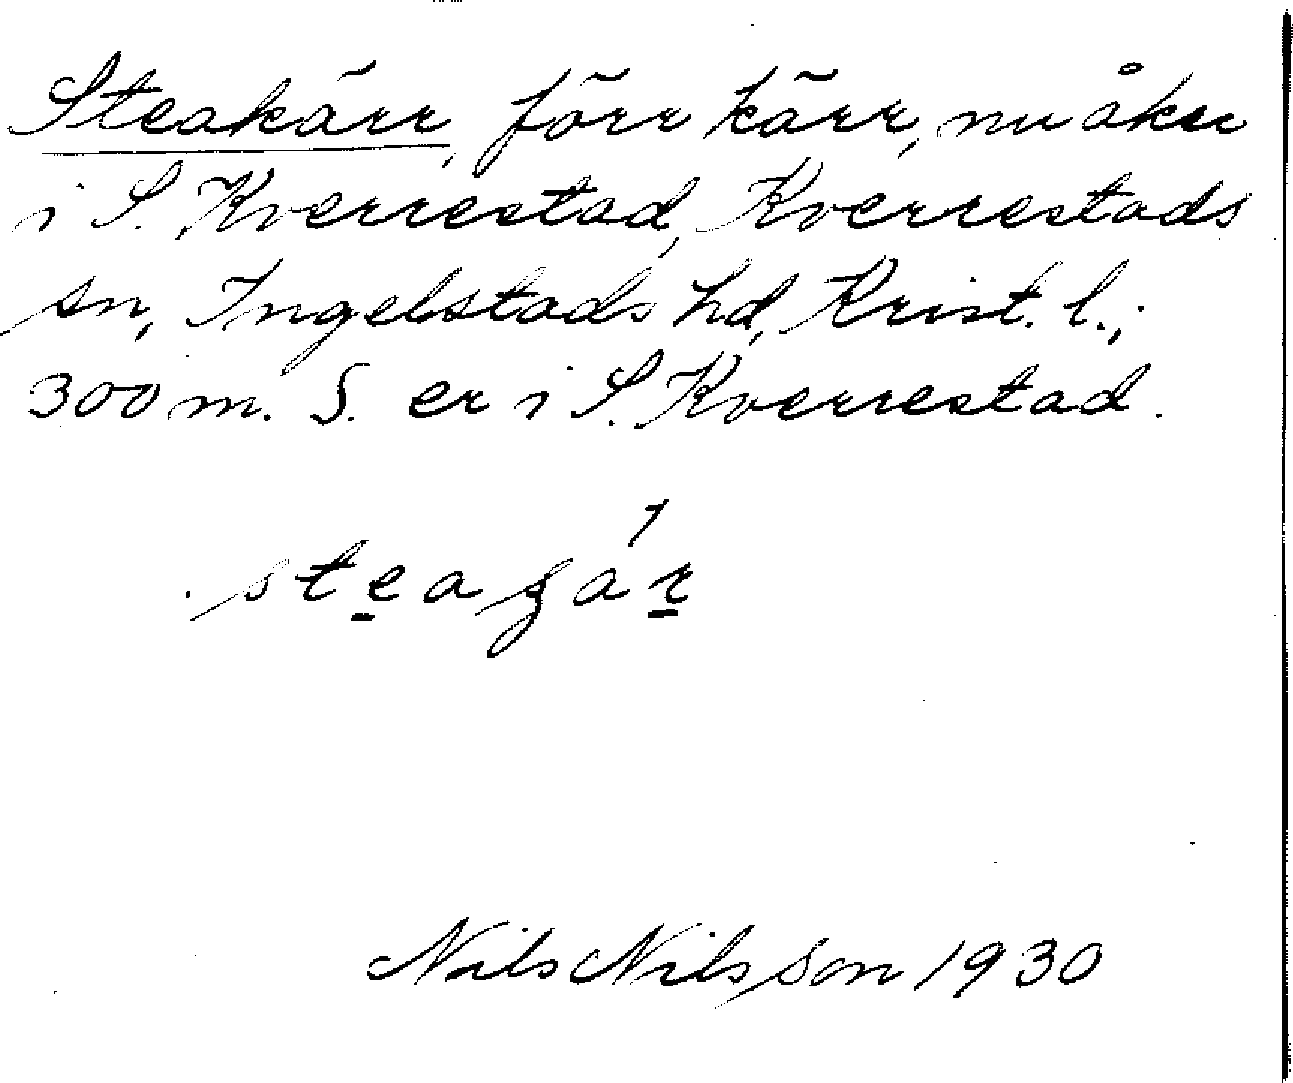 Steakärr, förr kärr, nu åker
i S. Kverrestad, Kverrestads
sn, Ingelstads hd, Krist. l.;
300 m. S. er i S. Kverrestad.
steagár
Nils Nilsson 1930